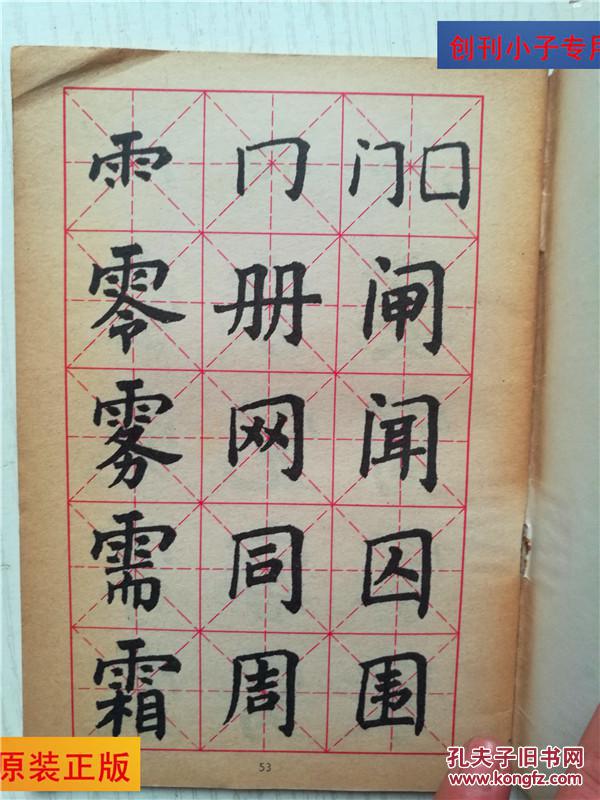 创刊小子专用
雨 冂 门 囗
零 册 闸
雾 网 闻
需 同 囚
霜 周 围
53
原装正版
孔夫子旧书网
www.kongfz.com